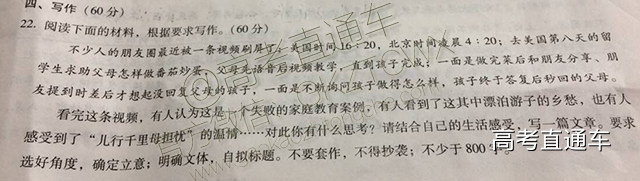 四、写作(60分)
22. 阅读下面的材料，根据要求写作。(60分)
不少人的朋友圈最近被一条视频刷屏了。美国时间16：20，北京时间凌晨4：20；去美国第八天的留
学生求助父母怎样做番茄炒蛋，父母先语音后视频教学，直到孩子完成；一面是做完菜后和朋友分享、朋
友提到时差后才想起没回复父母的孩子，一面是不断询问孩子做得怎么样，孩子终于答复后秒回的父母。
看完这条视频，有人认为这是一个失败的家庭教育案例，有人看到了这其中漂泊游子的乡愁，也有人
感受到了“儿行千里母担忧”的温情……对此你有什么思考？请结合自己的生活感受，写一篇文章。要求
选好角度，确定立意；明确文体，自拟标题。不要套作，不得抄袭；不少于800字。
高考直通车
高考直通车